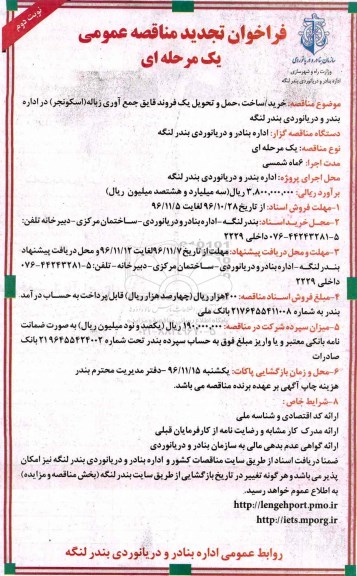 نوبت دوم
سازمان بنادر و دریانوردی
وزارت راه و شهرسازی
اداره بنادر و دریانوردی بندر لنگه
فراخوان تجدید مناقصه عمومی
یک مرحله ای
موضوع مناقصه: خرید/ساخت ،حمل و تحویل یک فروند قایق جمع آوری زباله(اسکونجر) در اداره
بندر و دریانوردی بندر لنگه
دستگاه مناقصه گزار: اداره بنادر و دریانوردی بندر لنگه
نوع مناقصه: یک مرحله ای
مدت اجرا: ۶ماه شمسی
محل اجرای پروژه: اداره بندر و دریانوردی بندر لنگه
برآورد ریالی: ۳.۸۰۰.۰۰۰.۰۰۰ ریال(سه میلیارد و هشتصد میلیون ریال)
۱-مهلت فروش اسناد: از تاریخ ۹۶/۱۰/۲۸ لغایت ۹۶/۱۱/۵
۲-محل خرید اسناد: بندر لنگه-اداره بنادر و دریانوردی-ساختمان مرکزی-دبیرخانه تلفن:
۵-۰۷۶-۴۴۲۴۳۲۸۱ داخلی ۲۲۲۹
۳-مهلت و محل دریافت پیشنهاد: مهلت از تاریخ ۹۶/۱۱/۷لغایت ۹۶/۱۱/۱۲ و محل دریافت پیشنهاد
بندر لنگه-اداره بنادر و دریانوردی-ساختمان مرکزی-دبیرخانه-تلفن: ۵-۰۷۶-۴۴۲۴۳۲۸۱
داخلی ۲۲۲۹
۴-مبلغ فروش اسناد مناقصه: ۴۰۰هزار ریال(چهارصد هزار ریال) قابل پرداخت به حساب درآمد
بندر به شماره ۲۱۷۶۴۵۵۴۱۱۰۰۸ بانک ملی
۵-میزان سپرده شرکت در مناقصه: ۱۹۰.۰۰۰.۰۰۰ ریال (یکصد و نود میلیون ریال) به صورت ضمانت
نامه بانکی معتبر و یا واریز مبلغ فوق به حساب سپرده بندر تحت شماره ۲۱۹۶۴۵۵۴۲۴۰۰۲ بانک
صادرات
۶-محل و زمان بازگشایی پاکات: یکشنبه ۹۶/۱۱/۱۵ -دفتر مدیریت محترم بندر
هزینه چاپ آگهی بر عهده برنده مناقصه می باشد.
۸-شرایط خاص:
ارائه کد اقتصادی و شناسه ملی
ارائه مدرک کار مشابه و رضایت نامه از کارفرمایان قبلی
ارائه گواهی عدم بدهی مالی به سازمان بنادر و دریانوردی
ضمنا دریافت اسناد از طریق سایت مناقصات کشور و اداره بنادر و دریانوردی بندر لنگه نیز امکان
پذیر می باشد و هر گونه تغییر در تاریخ بازگشایی از طریق سایت بندر لنگه (بخش مناقصه و مزایده)
به اطلاع عموم خواهد رسید.
http://lengehport.pmo.ir
http://iets.mporg.ir
روابط عمومی اداره بنادر و دریانوردی بندر لنگه